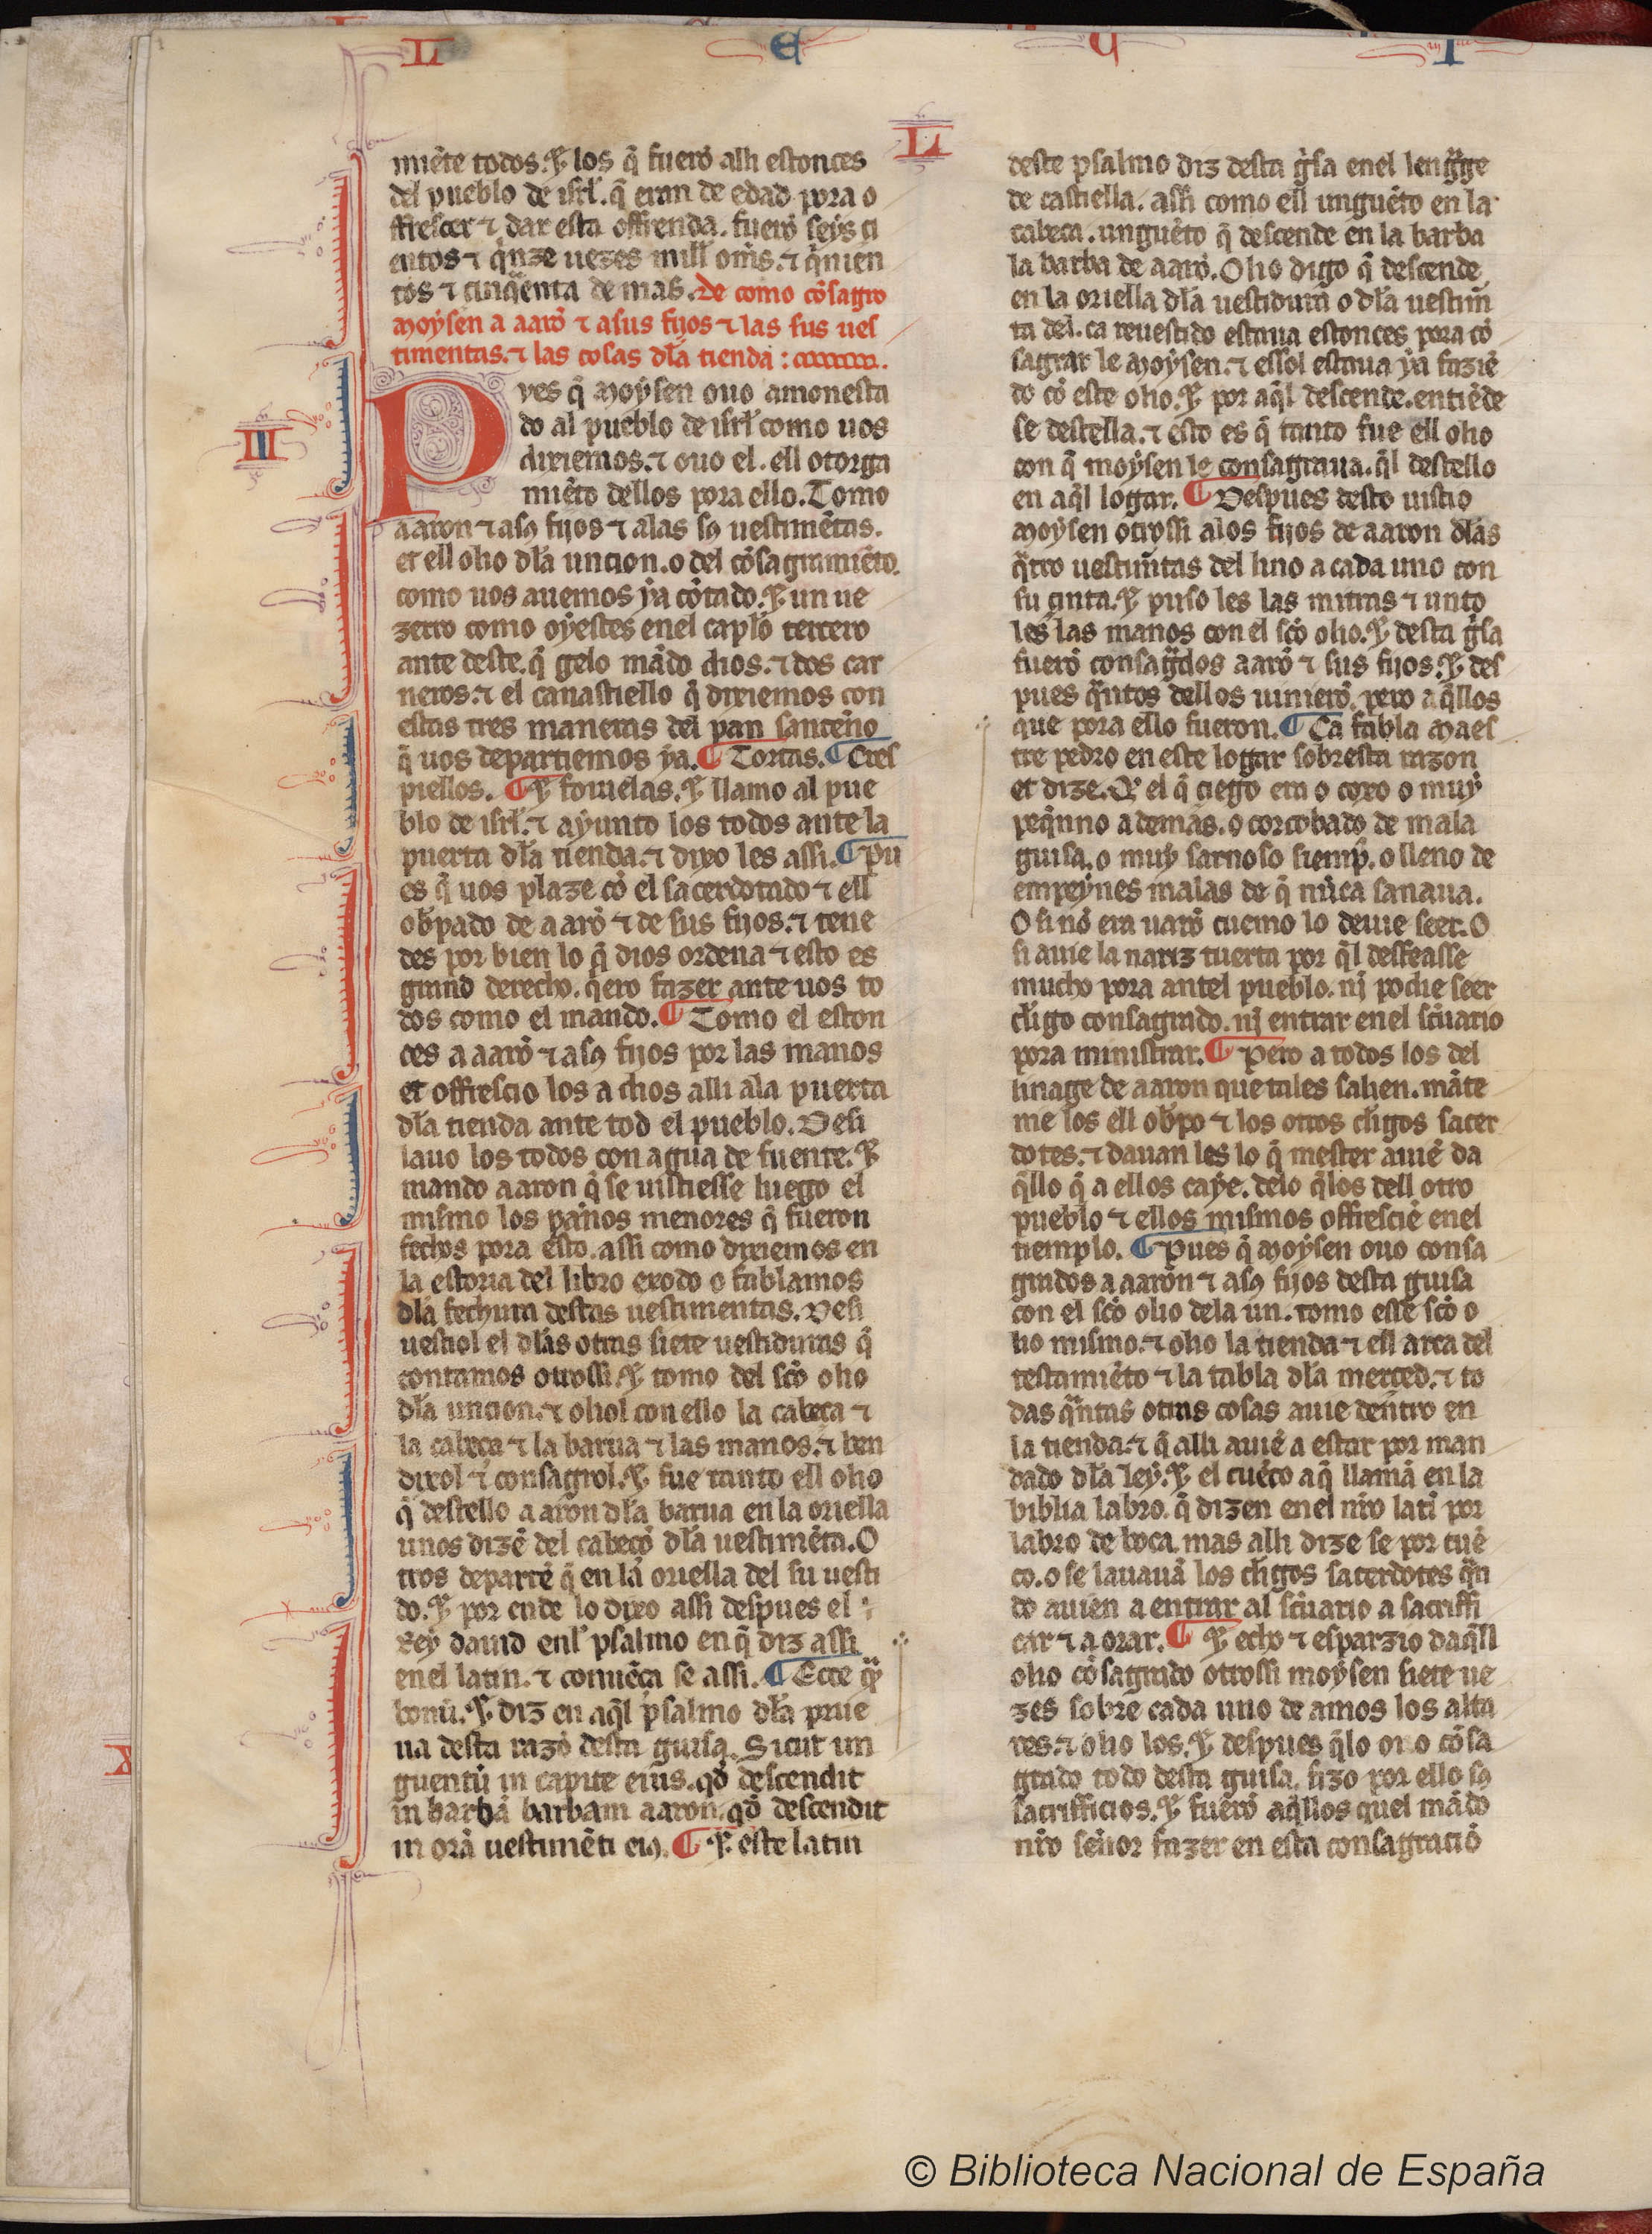 L E U I
L
miẽte todos. ⁊ los q̃ fuerõ alli estonces
del pueblo de isrł. q̃ eran de edad pora o
ffrescer ⁊ dar esta offrenda. fuerõ seys ci
entos ⁊ q̃nze uezes mill om̃s. ⁊ q̃nien
tos ⁊ cinq̃enta de mas. De como cõsagro
Moysen a aarõ ⁊ asus fijos ⁊ las sus ues
timentas. ⁊ las cosas dła tienda :
II
Pves q̃ Moysen ouo amonesta
do al pueblo de isrł como uos
dixiemos. ⁊ ouo el. ell otorga
miẽto dellos pora ello. Tomo
aaron ⁊ asꝯ fijos ⁊ alas sꝯ uestimẽtas.
et ell olio dła uncion. o del cõsagramiẽto.
como uos auemos ya cõtado. ⁊ un ue
zerro como oyestes enel capło tercero
ante deste. q̃ gelo mãdo dios. ⁊ dos car
neros. ⁊ el canastiello q̃ dixiemos con
estas tres maneras del pan sanceño
q̃ uos departiemos ya. ¶ Tortas. ¶ Cres
piellos. ¶ ⁊ foiuelas. ⁊ llamo al pue
blo de isrł. ⁊ ayunto los todos ante la
puerta dła tienda. ⁊ dixo les assi. ¶ Pu
es q̃ uos plaze cõ el sacerdotado ⁊ ell
obp̃ado de aarõ ⁊ de sus fijos. ⁊ tene
des por bien lo q̃ dios ordena ⁊ esto es
grand derecho. q̃ero fazer ante uos to
dos como el mando. ¶ Tomo el eston
ces a aarõ ⁊ asꝯ fijos por las manos
et offrescio los a dios alli ala puerta
dła tienda ante tod el pueblo. Desi
lauo los todos con agua de fuente. ⁊
mando aaron q̃ se uistiesse luego el
mismo los paños menores q̃ fueron
fechos pora esto. assi como dixiemos en
la estoria del libro exodo o fablamos
dła fechura destas uestimentas. Desi
uestiol el dłas otras siete uestiduras q̃
contamos otrossi. ⁊ tomo del scõ olio
dła uncion. ⁊ oliol con ello la cabeça ⁊
la cabeça ⁊ la barua ⁊ las manos. ⁊ ben
dixol ⁊ consagrol. ⁊ fue tanto ell olio
q̃ destello a aaron dła barua en la oriella
unos dizẽ del cabeçõ dła uestimẽta. O
tros departẽ q̃ en la oriella del su uesti
do. ⁊ por ende lo dixo assi despues el
Rey dauid enł psalmo en q̃ diz assi
enel latin. ⁊ comiẽça se assi. ¶ Ecce q̃
bonũ. ⁊ diz en aq̃l psalmo dła prue
ua desta razõ desta guisa. Sicut un
guentũ in capite eius. qd̃ descendit
in barbã barbam aaron. qd̃ descendit
in orã uestimẽti eiꝯ. ¶ ⁊ este latin
deste psalmo diz desta gⁱsa enel lengᵃge
de castiella. assi como ell unguẽto en la
cabeça. unguẽto q̃ descende en la barba
la barba de aarõ. Olio digo q̃ descende
en la oriella dła uestidura o dła uestim̃
ta del. ca reuestido estaua estonces pora cõ
sagrar le Moysen. ⁊ essol estaua ya faziẽ
do cõ este olio. ⁊ por aq̃l descende. entiẽde
se destella. ⁊ esto es q̃ tanto fue ell olio
con q̃ moysen le consagraua. q̃l destello
en aq̃l logar. ¶ Despues desto uistio
Moysen otrossi alos fijos de aaron dłas
qᵃtro uestim̃tas del lino a cada uno con
su cinta. ⁊ puso les las mitras ⁊ unto
les las manos con el scõ olio. ⁊ desta gⁱsa
fuerõ consagᵃdos aarõ ⁊ sus fijos. ⁊ des
pues qᵃntos dellos uinierõ. pero aq̃llos
que pora ello fueron. ¶ Ca fabla Maes
tre pedro en este logar sobresta razon
et dize. Q̃ el q̃ ciego era o coxo o muy
peq̃nno ademas. o corcobado de mala
guisa. o muy sarnoso siemp̃. o lleno de
empeynes malas de q̃ nũca sanaua.
O si nõ era uarõ cuemo lo deuie seer. O
si auie la nariz tuerta por q̃l desfeasse
mucho pora antel pueblo. nj podie seer
cłigo consagrado. nj entrar enel scũario
pora ministrar. ¶ Pero a todos los del
linage de aaron que tales salien. mãte
nie los ell obp̃o ⁊ los otros cłigos sacer
dotes. ⁊ dauan les lo q̃ mester auiẽ da
q̃llo q̃ a ellos caye. delo q̃los dell otro
pueblo ⁊ ellos mismos offresciẽ enel
tiemplo. ¶ Pues q̃ Moysen ouo consa
grados a aaron ⁊ asꝯ fijos desta guisa
con el scõ olio dela un. tomo esse scõ o
lio mismo. ⁊ olio la tienda ⁊ ell arca del
testamiẽto ⁊ la tabla dła merced. ⁊ to
das qᵃntas otras cosas auie dentro en
la tienda. ⁊ q̃ alli auiẽ a estar por man
dado dła ley. ⁊ el cuẽco aq̃ llamã en la
biblia labro. q̃ dizen enel nr̃o latĩ por
labro de boca. mas alli dize se por cuẽ
co. o se lauauã los cłigos sacerdotes qᵃn
do auien a entrar al scũario a sacriffi
car ⁊ a orar. ¶ ⁊ echo ⁊ esparzio daq̃ll
olio cõsagrado otrossi moysen siete ue
zes sobre cada uno de amos los alta
res. ⁊ olio los. ⁊ despues q̃lo ouo cõsa
grado todo desta guisa. fizo por ello sꝯ
sacrifficios. ⁊ fuerõ aq̃llos quel mãdo
nr̃o señor fazer en esta consagraciõ
© Biblioteca Nacional de España